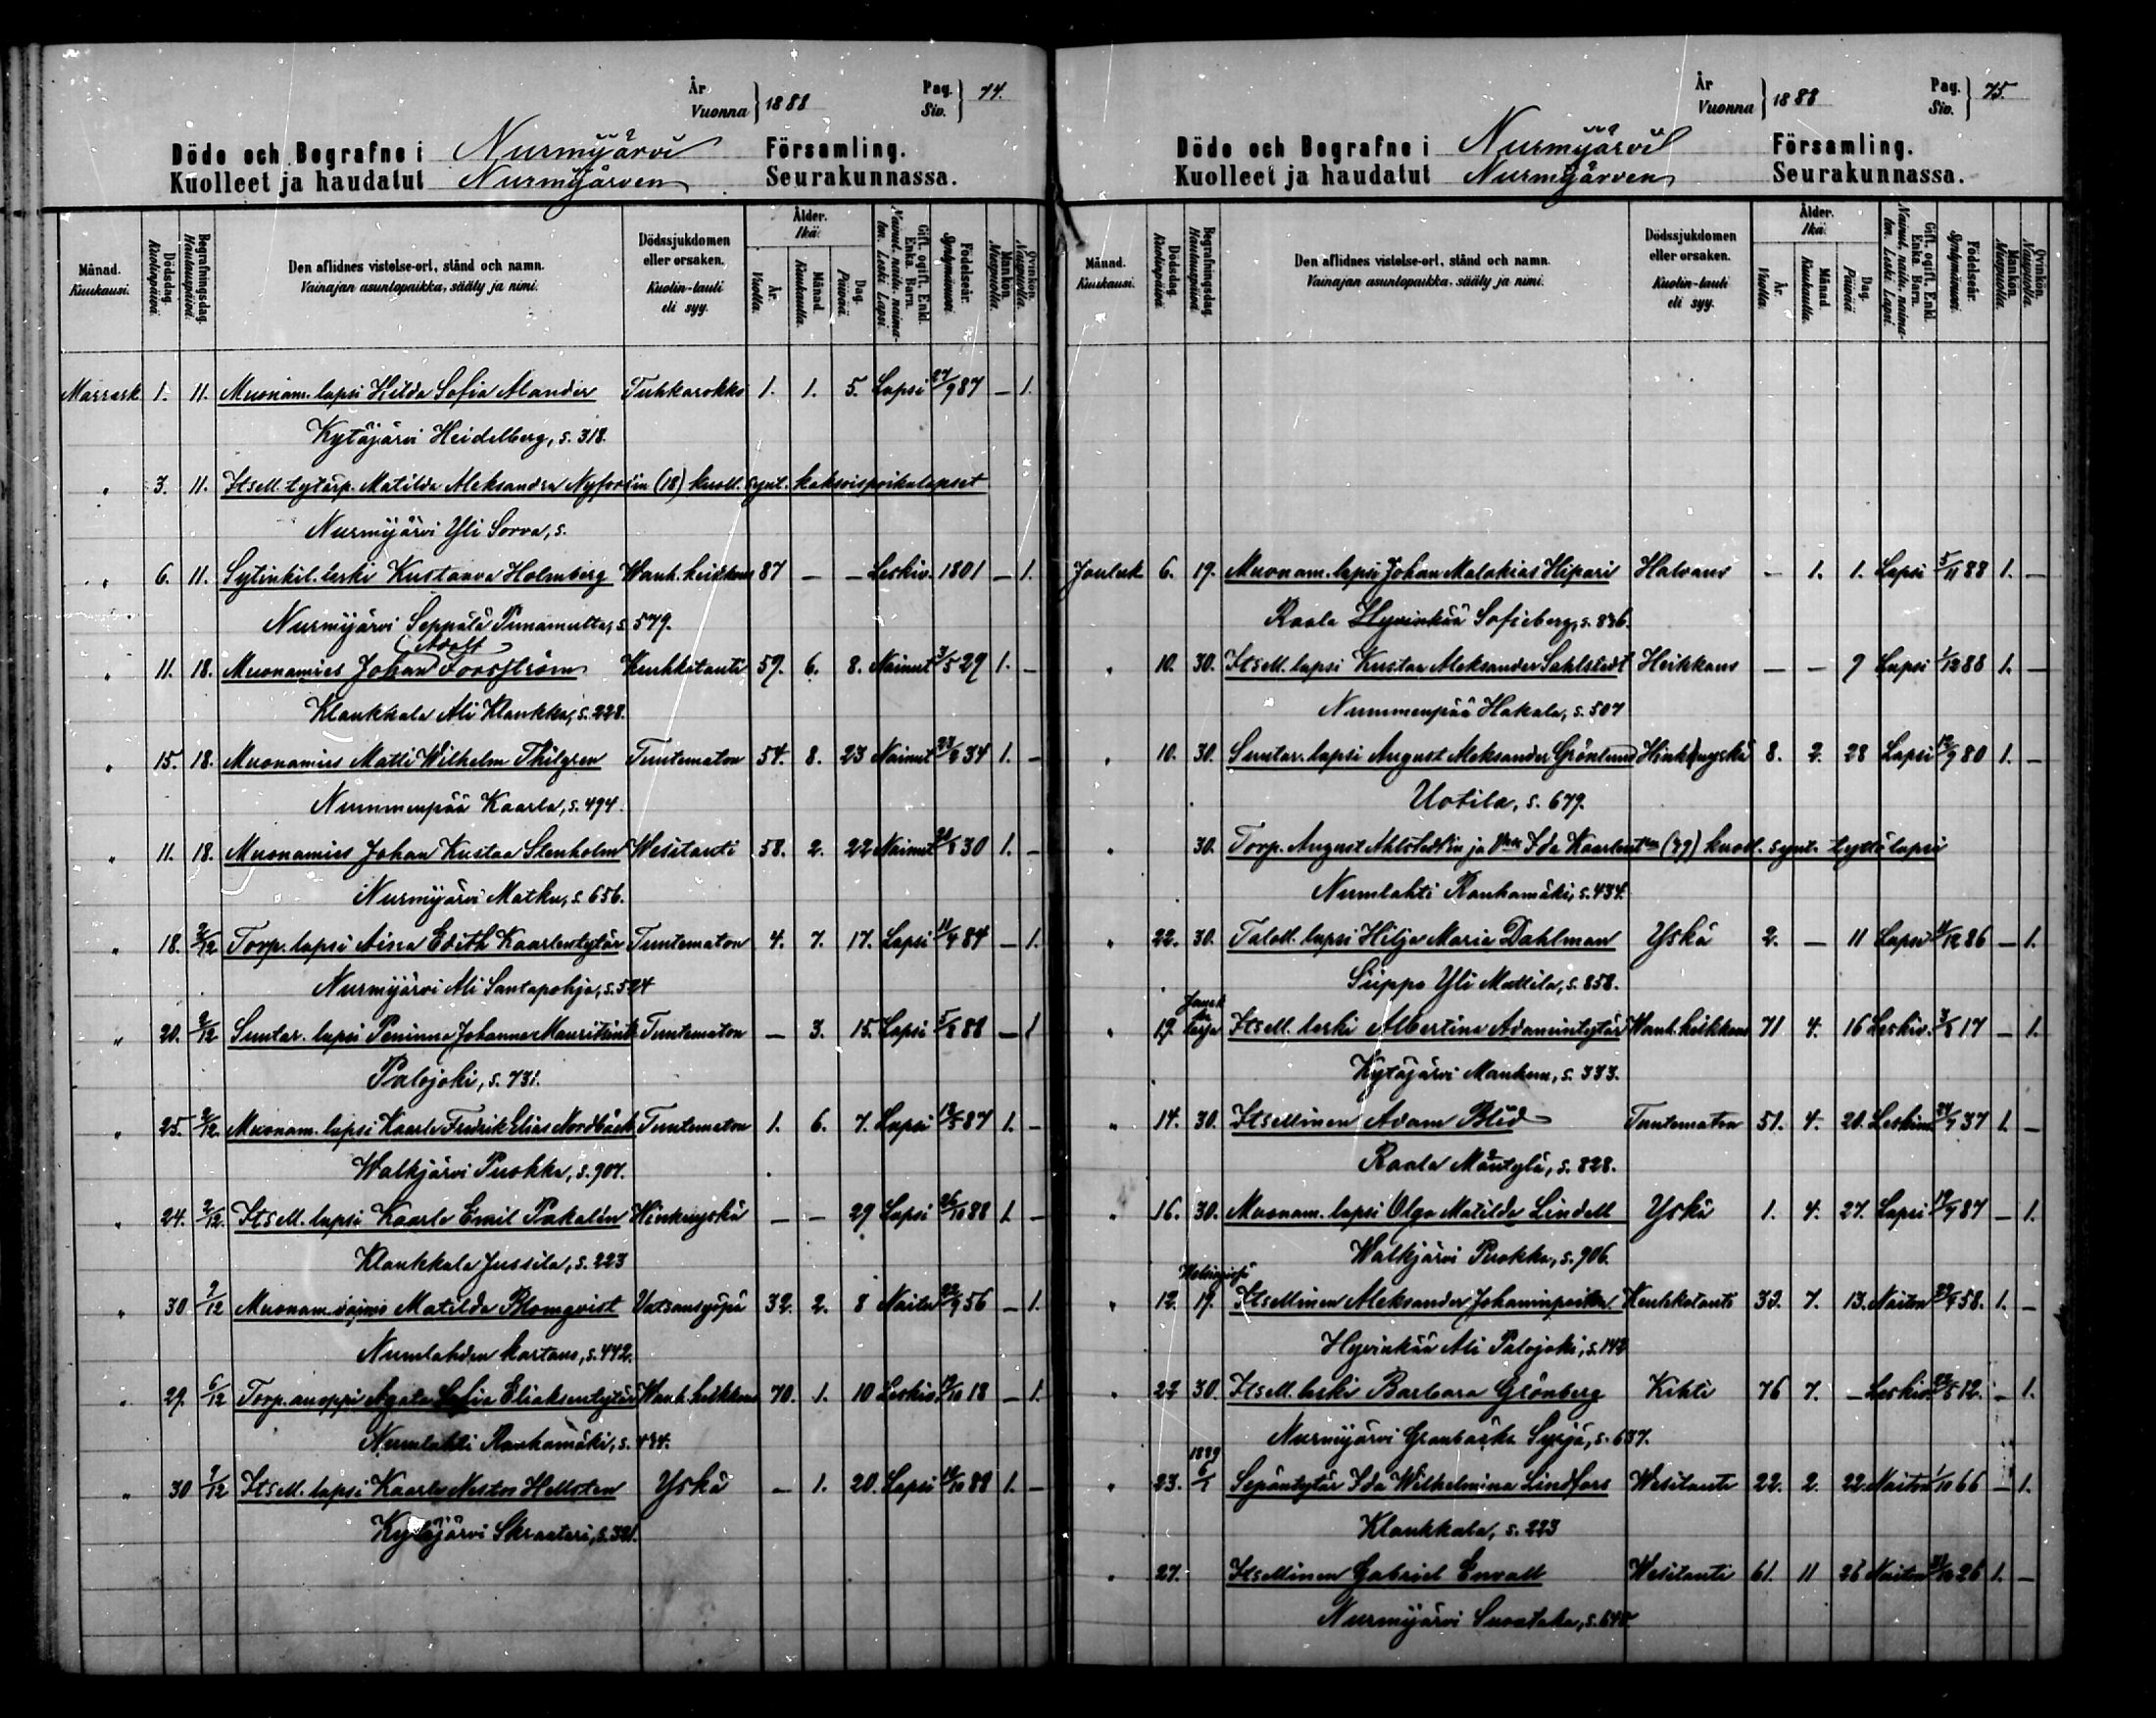 År
Vuonna } 1888 Pag. Siv. } 74.
Döde och Begrafne i Nurmijärvi Församling.
Kuolleet ja haudatut Nurmijärven Seurakunnassa.
Månad. Kuukausi.
Dödsdag. Kuolinpäivä.
Begrafningsdag. Hautauspäivä.
Den aflidnes vistelse-ort, stånd och namn.
Vainajan asuntopaikka, sääty ja nimi.
Dödssjukdomen eller orsaken.
Kuolin-tauti eli syy.
Ålder. Ikä.
År. Vuotta.
Månad. Kuukautta.
Dag. Päivää.
Gift, ogift, Enkl. Enka. Barn.
Födelseår. Syntymävuosi.
Mankön. Miespuolta.
Qvinkön. Naispuolta.
Marrask. 1. 11. Muonam. lapsi Hilda Sofia Alander Tuhkarokko 1. 1. 5. Lapsi 27/9 87 — 1.
Kytäjärvi Heidelberg, s. 318.
" 3. 11. Itsell. tytärp. Matilda Aleksandra (18) kuoll. synt. kaksoispoikalapset
Nurmijärvi Yli Sorva, s.
" 6. 11. leski Kustaava Holmberg Wanh. heikkous 87 — — Leskiv. 1801 — 1.
Nurmijärvi Seppälä Punamulta, s. 579.
Adolf
" 11. 18. Muonamies Johan Forsström Keuhkotauti 59. 6. 8. Nainut 3/5 29 1. —
Klaukkala Ali Klaukka, s. 228.
" 15. 18. Muonamies Matti Wilhelm Thilgren Tuntematon 54. 8. 23 Nainut 34 1. —
Nummenpää Kaarla, s. 494.
" 11. 18. Muonamies Johan Kustaa Stenholm Wesitauti 58. 2. 22 Nainut 30 1. —
Nurmijärvi Matku, s. 656.
" 18. 2/12 Torp. lapsi Aina Edith Kaarlentytär Tuntematon 4. 7. 17. Lapsi 84 — 1.
Nurmijärvi Ali Santapohja, s. 524
" 20. 2/12 Suutar. lapsi Peninna Johanna Tuntematon — 3. 15. Lapsi 5/8 88 — 1
Palojoki, s. 731.
" 25. 2/12. Muonam. lapsi Kaarlo Fredrik Elias Nordbäck Tuntematon 1. 6. 7. Lapsi 18/5 87 1. —
Walkjärvi Puokka, s. 907.
" 24. 2/12. Itsell. lapsi Kaarlo Emil Pakalén Hinkuyskä — — 29 Lapsi 26/10 88 1 —
Klaukkala Jussila, s. 223
" 30. 9/12 Muonam. vaimo Matilda Blomqvist 32. 2. 8 Naitu 22/9 56 — 1.
Numlahden kartano, s. 442.
" 29. 6/12 Torp. anoppi Agata Sofia Eliaksentytär Wanh. heikkous 70. 1. 10 Leskiv. 18 — 1.
Numlahti Rauhamäki, s. 434.
" 30 9/12 Itsell. lapsi Kaarlo Nestor Hellsten Yskä — 1. 20. Lapsi 10/10 88 1. —
Kytäjärvi Skraateri, s. 321.
År
Vuonna } 1888 Pag. Siv. } 75.
Döde och Begrafne i Nurmijärvi Församling.
Kuolleet ja haudatut Nurmijärven Seurakunnassa.
Månad. Kuukausi.
Dödsdag. Kuolinpäivä.
Begrafningsdag. Hautauspäivä.
Den aflidnes vistelse-ort, stånd och namn.
Vainajan asuntopaikka, sääty ja nimi.
Dödssjukdomen eller orsaken.
Kuolin-tauti eli syy.
Ålder. Ikä.
År. Vuotta.
Månad. Kuukautta.
Dag. Päivää.
Gift, ogift, Enkl. Enka. Barn.
Födelseår. Syntymävuosi.
Mankön. Miespuolta.
Qvinkön. Naispuolta.
Jouluk. 6. 19. Muonam. lapsi Johan Malakias Hipari Halvaus — 1. 1. Lapsi 5/11 88 1. —
Raala Hyvinkää Sofieberg, s. 836.
" 10. 30. Itsell. lapsi Kustaa Aleksander Sahlstedt Heikkous — — 9 Lapsi 1/12 88 1. —
Nummenpää Hakala, s. 507
" 10. 30. Suutar. lapsi August Aleksander Grönlund Hinkuyskä 8. 2. 28 Lapsi 12/9 80 1. —
Uotila, s. 679.
" 30. Torp. August Ahlstedt'in ja Ida (29) kuoll. synt. tyttölapsi
Numlahti Rauhamäki, s. 434.
" 22. 30. Taloll. lapsi Hilja Maria Dahlman Yskä 2. — 11 Lapsi 11/12 86 — 1.
Siippo Yli Mattila, s. 858.
" 19. Itsell. leski Albertina Adamintytär Wanh. heikkous 71 4. 16 Leskiv. 3/8 17 — 1.
Kytäjärvi Maukku, s. 333.
" 14. 30. Itsellinen Adam Blid Tuntematon 51. 4. 20. 37 1. —
Raala Mäntylä, s. 828.
" 16. 30. Muonam. lapsi Olga Matilda Lindell Yskä 1. 4. 27. Lapsi 19/7 87 — 1.
Walkjärvi Puokka, s. 906.
" 12. 19. Itsellinen Aleksander Johaninpoika Keuhkotauti 33. 7. 13. Naiton 58. 1. —
Hyvinkää Ali Palojoki, s. 142
" 22 30. Itsell. leski Barbara Grönberg Kihti 76 7. — Leskiv. 22/5 12. — 1.
Nurmijärvi Granbacka Syrjä, s. 637.
1889
" 23. 6/1 Sepäntytär Ida Wilhelmina Lindfors Wesitauti 22. 2. 22. Naiton 1/10 66 — 1.
Klaukkala, s. 223
" 27. Itsellinen Gabriel Envall Wesitauti 61. 11 26 Naiton 26 1. —
Nurmijärvi Suvataka, s. 645